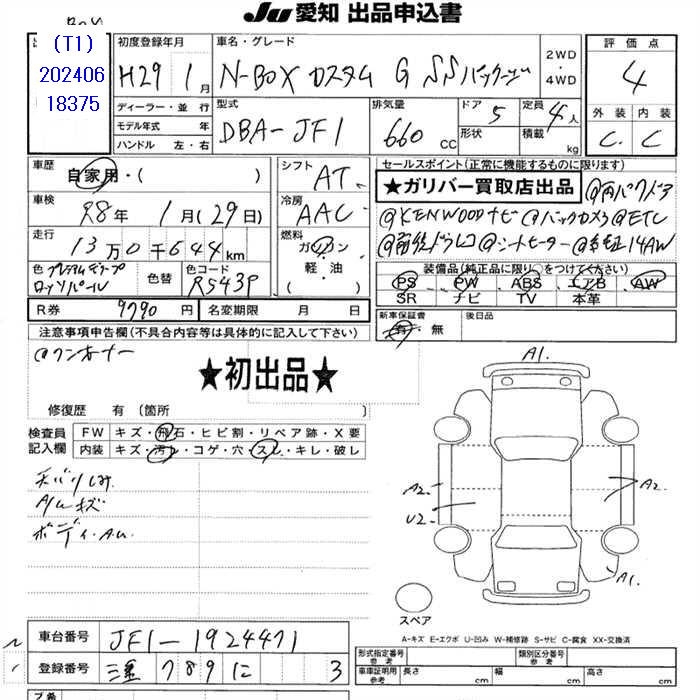 JU 愛知 出品申込書
(T1)
202406
18375
初度登録年月
H29 1月
車名・グレード
N-BOX カスタム G SSパッケージ
2WD
4WD
評価点
4
ディーラー・並行
モデル年式 年
ハンドル 左・右
型式
DBA-JF1
排気量
660 CC
ドア 5
形状
定員 4人
積載 kg
外装 内装
C C
車歴
自家用・( )
車検
R8年 1月(29日)
走行
13万0千644km
色 プレミアムディープ
ロッソパール
色替
色コード
R543P
シフト AT
冷房
AAC
燃料
ガソリン
軽・油
( )
セールスポイント(正常に機能するものに限ります)
★ガリバー買取店出品 @両パワドア
@KENWOODナビ @バックカメラ @ETC
@前後ドラレコ @シートヒーター @純正14AW
装備品(純正品に限り○をつけてください)
PS PW ABS エアB AW
SR ナビ TV 本革
R券 9790円
名変期限 月 日
新車保証書
有・無
後日品
注意事項申告欄(不具合内容等は具体的に記入して下さい)
@ワンオーナー
★初出品★
修復歴 有(箇所 )
検査員
記入欄
FW キズ・飛石・ヒビ割・リペア跡・X要
内装 キズ・汚レ・コゲ・穴・スレ・キレ・破レ
天バリしみ
A/Wキズ
ボディ・A.U.
A1.
A2.
U2.
A2.
A1.
スペア
A-キズ E-エクボ U-凹み W-補修跡 S-サビ C-腐食 XX-交換済
車台番号 JF1-1924471
登録番号 三重 789 に 3
形式指定番号
参考
類別区分番号
参考
車庫証明用
参考
長さ cm 幅 cm 高さ cm